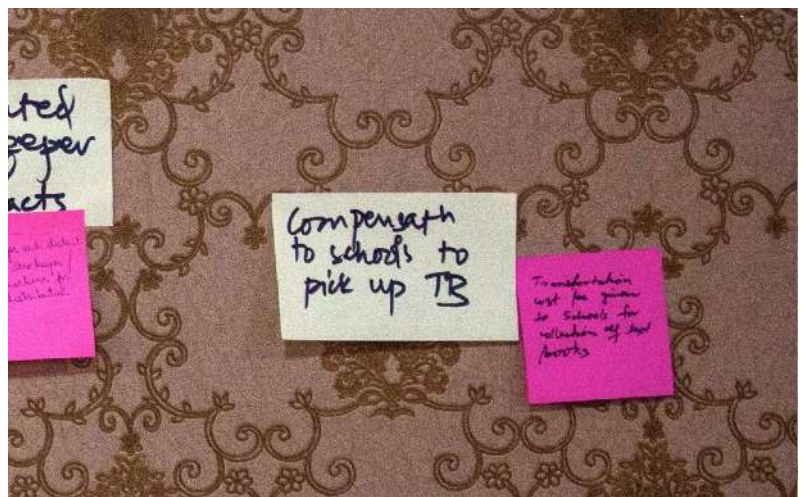 ated
eeper
acts
Compensath
to schools to
pick up TB
Transportation
cost be given
to Schools for
collection of text
books